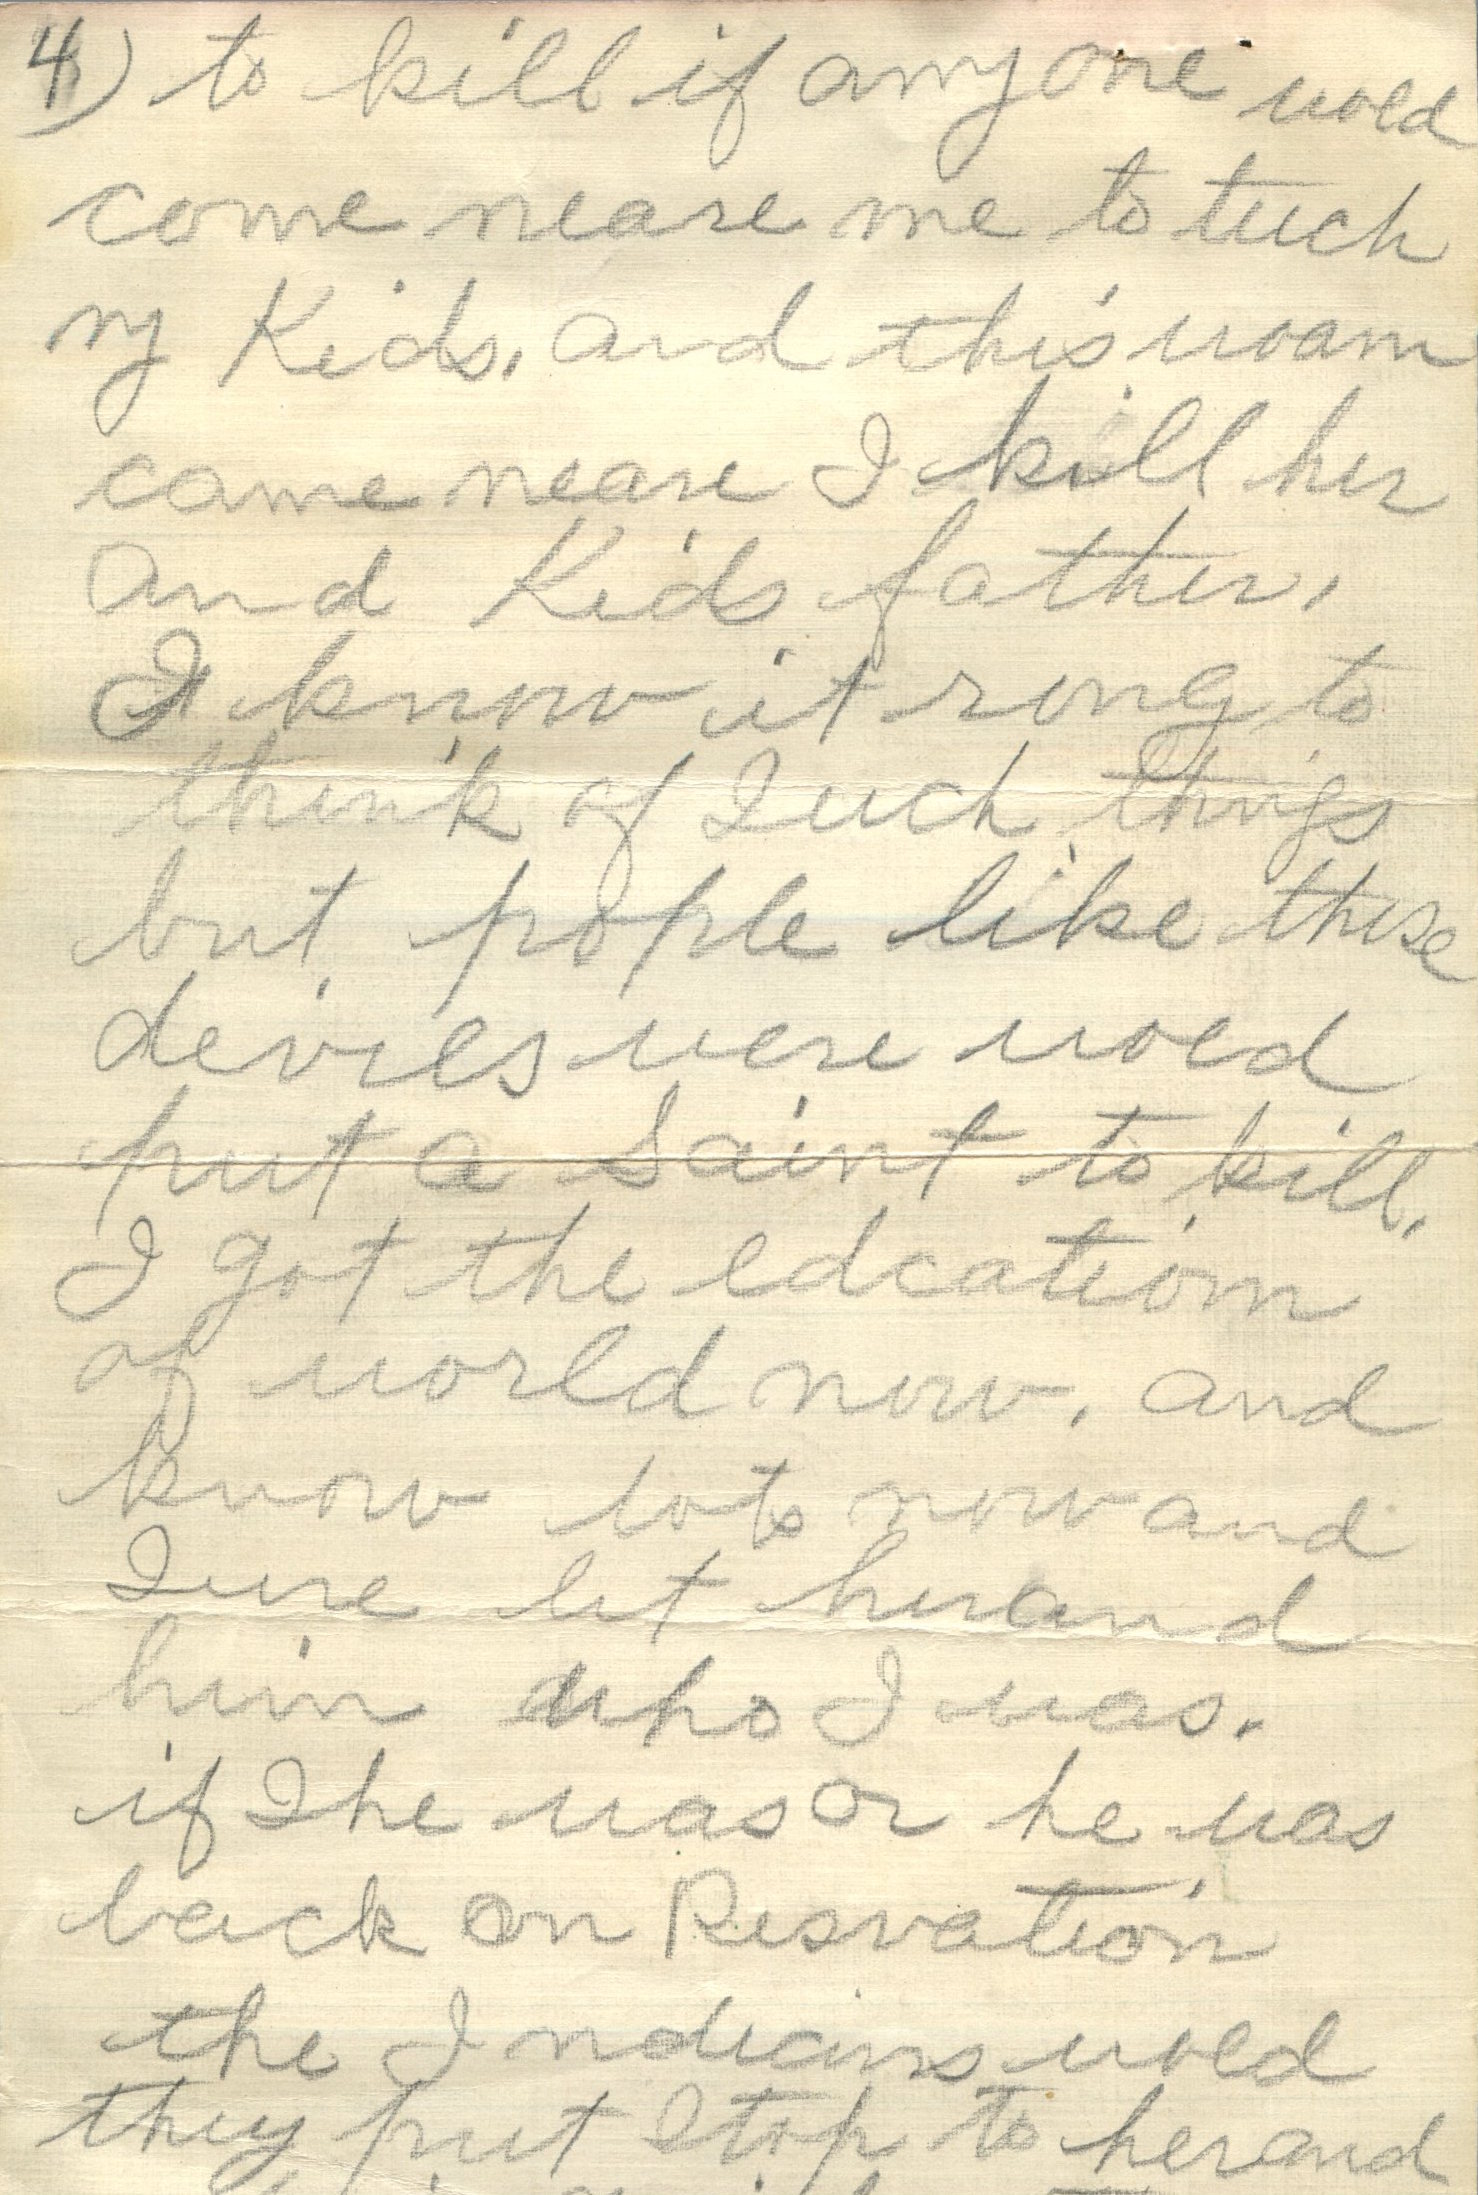 4) to kill if anyone wold
come neare me to tuch
my Kids. and this woam
came neare I kill her
and Kids father.
I know it rong to
think of Such things
but pople like these
deviles were wold
put a Saint to kill.
I got the edcation
of world now. and
know lots now and
Sure let her and
him who I was.
if She was or he was
back on Resvation
the Indians wold
they put Stop to her and